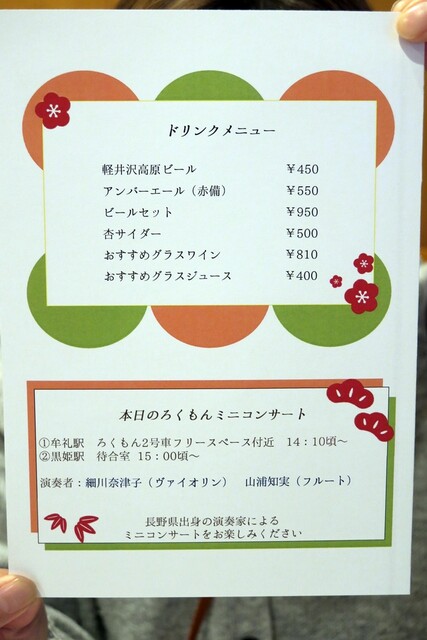 ドリンクメニュー
軽井沢高原ビール ￥450
アンバーエール（赤備） ￥550
ビールセット ￥950
杏サイダー ￥500
おすすめグラスワイン ￥810
おすすめグラスジュース ￥400
本日のろくもんミニコンサート
①牟礼駅 ろくもん2号車フリースペース付近 14：10頃～
②黒姫駅 待合室 15：00頃～
演奏者：細川奈津子（ヴァイオリン） 山浦知実（フルート）
長野県出身の演奏家による
ミニコンサートをお楽しみください